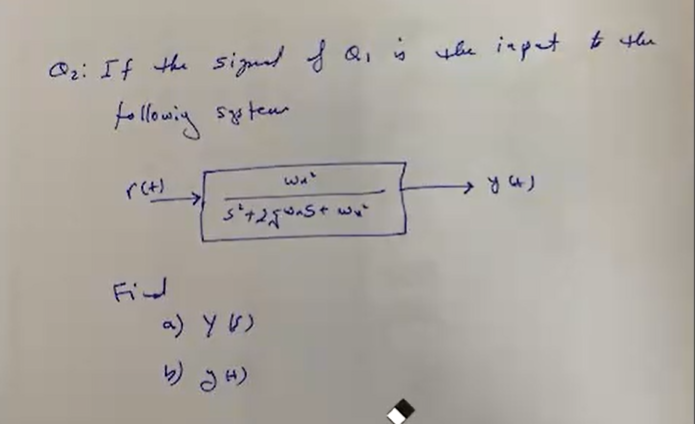 Q2: If the signal of Q1 is the input to the
following system
r(t)
ωn²
s²+2ξωns+ωn²
y(t)
Find
a) Y(s)
b) y(t)